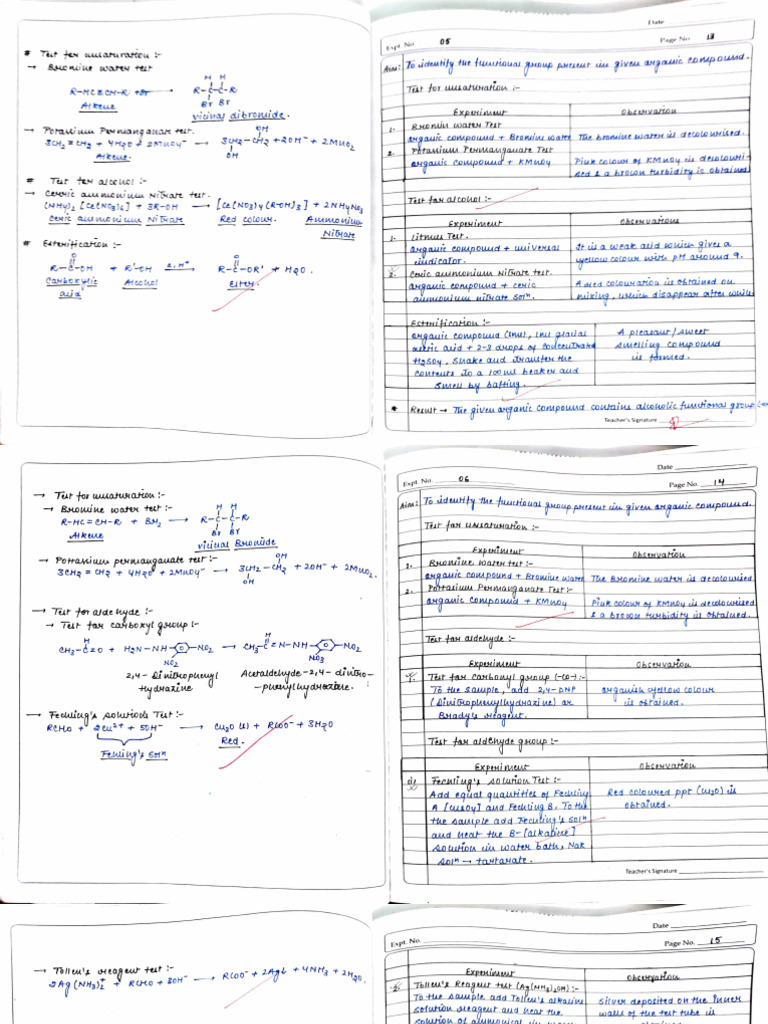 # Test for unsaturation :-
→ Bromine water test
R-HC=CH-R +Br → R-C-C-R
H H
Br Br
Alkene
vicinal dibromide.
→ Potassium Permanganar test.
3CH2=CH2 + 4H2O + 2MnO4⁻ → 3CH2-CH2 +2OH⁻ + 2MnO2
OH
OH
Alkene.
# Test for alcohol :-
→ Cerric ammonium Nitrate test.
(NH4)2 [Ce(NO3)6] + 3R-OH → [Ce(NO3)4(R-OH)3] + 2NH4NO3
Ceric ammonium Nitrate
Red colour.
Ammonium Nitrate
# Esterification :-
R-C-OH + R'-OH → R-C-OR' + H2O.
O
O
Carboxylic acid
Alcohol
Ester.
Date
Expt. No. 05
Page No. 13
Aim: To identify the functional group present in given organic compound.
Test for unsaturation :-
Experiment
Observation
1. Bromin water Test
organic compound + Bromine water
The bromine water is decolourised.
2. Potassium Permanganate Test
organic compound + KMnO4
Pink colour of KMnO4 is decolouri-
sed & a brown turbidity is obtained
Test for alcohol :-
Experiment
Observations
1. Litmus Test.
organic compound + universal
indicator.
It is a weak acid which gives a
yellow colour with pH around 9.
2. Ceric ammonium nitrate test.
organic compound + ceric
ammonium nitrate solⁿ.
A red colouration is obtained on
mixing, which disappear after while
Esterification :-
organic compound (1ml), 1ml glacial
acetic acid + 2-3 drops of concentrated
H2SO4, shake and transfer the
contents to a 100ml beaker and
smell by bafting.
A pleasant / sweet
smelling compound
is formed.
* Result → The given organic compound contains alcoholic functional group
Teacher's Signature
→ Test for unsaturation :-
→ Bromine water test :-
R-HC=CH-R + BH2 → R-C-C-R
H H
Br Br
Alkene
vicinal Bromide
→ Pottassium permanganate test :-
3CH2=CH2 + 4H2O + 2MnO4⁻ → 3CH2-CH2 + 2OH⁻ + 2MnO2.
OH
OH
→ Test for aldehyde :-
→ Test for carboxyl group :-
CH3-C=O + H2N-NH- -NO2 → CH3-C=N-NH- -NO2
H
H
NO2
NO3
2,4-Dinitrophenyl
Hydrazine
Acetaldehyde-2,4-dinitro-
-phenylhydrazine.
→ Fechling's solution Test :-
RCHO + 2Cu²⁺ + 5OH⁻ → Cu2O (s) + RCOO⁻ + 3H2O
Red.
Fehling's solⁿ
Date
Expt. No. 06
Page No. 14
Aim: To identify the functional group present in given organic compound.
Test for unsaturation :-
Experiment
Observation
1. Bromine water test :-
organic compound + Bromine water
The Bromine water is decolourised.
2. Pottasium Permanganate Test :-
organic compound + KMnO4
Pink colour of KMnO4 is decolourised
& a brown turbidity is obtained.
Test for aldehyde :-
Experiment
Observation
1. Test for carbonyl group (-CO-) :-
To the sample, add 2,4-DNP
(Dinitrophenylhydrazine) or
Brady's reagent.
organish yellow colour
is obtained.
Test for aldehyde group :-
Experiment
Observation
Fechling's solution Test :-
Add equal quantities of Fechling
A [CuSO4] and Fechling B. To the
the sample add Fechling's solⁿ
and heat the B-[alkaline]
solution in water bath, Nak
solⁿ → tartarate.
Red coloured ppt (Cu2O) is
obtained.
Teacher's Signature
→ Tollen's reagent test :-
2Ag(NH3)2⁺ + RCHO + 3OH⁻ → RCOO⁻ + 2Ag↓ + 4NH3 + 2H2O.
Date
Expt. No.
Page No. 15
Experiment
Observation
2. Tollen's Reagent test (Ag(NH3)2OH) :-
To the sample add Tollen's alkaline
solution reagent and heat the
solution of ammonical in water
Silver deposited on the inner
walls of the test tube is